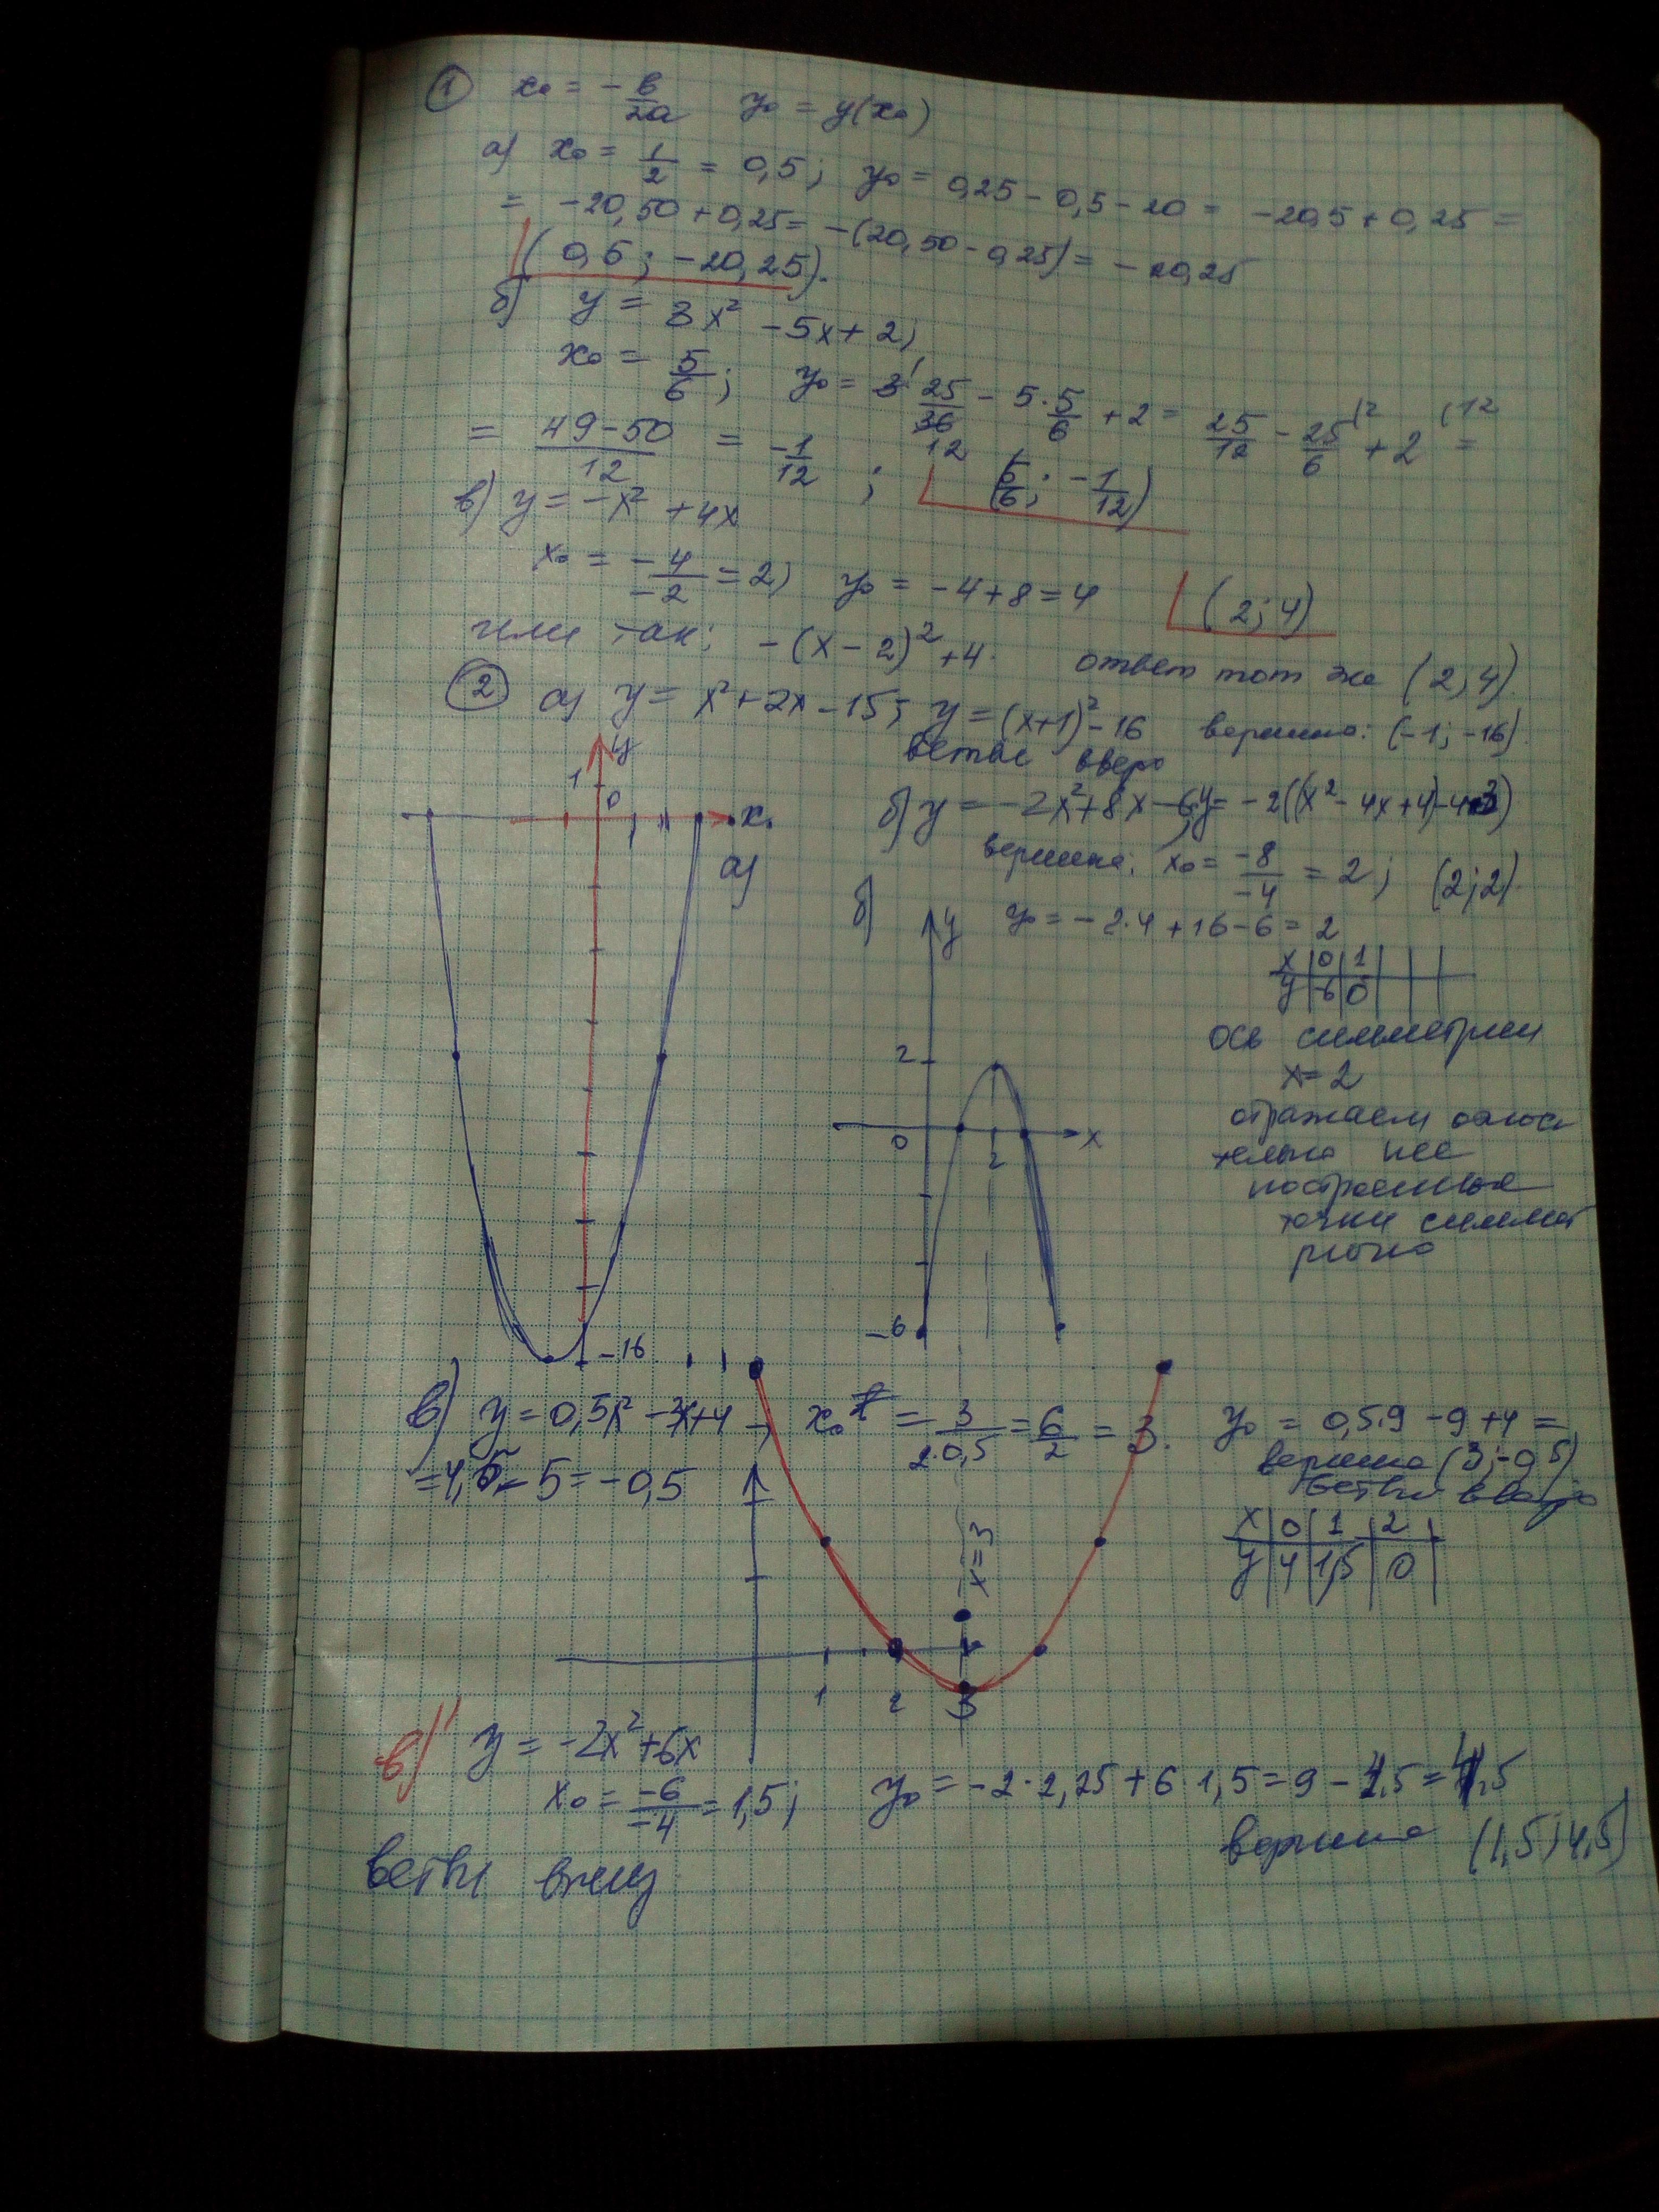 1 x₀ = -b/2a y₀ = y(x₀)
а) x₀ = 1/2 = 0,5; y₀ = 0,25 - 0,5 - 20 = -20,5 + 0,25 =
= -20,50 + 0,25 = -(20,50 - 0,25) = -20,25
(0,5; -20,25).
б) y = 3x² - 5x + 2;
x₀ = 5/6; y₀ = 3·25/36 - 5·5/6 + 2 = 25/12 - 25/6 + 2 =
= (49-50)/12 = -1/12; (5/6; -1/12)
в) y = -x² + 4x
x₀ = -4/-2 = 2; y₀ = -4+8 = 4 (2; 4)
или так: -(x-2)² + 4. ответ тот же (2; 4).
2 а) y = x² + 2x - 15; y = (x+1)² - 16 вершина: (-1; -16).
ветви вверх
y
1
0
x
а)
б) y = -2x² + 8x - 6; y = -2((x² - 4x + 4) - 4 + 3)
вершина: x₀ = -8/-4 = 2; (2; 2).
y₀ = -2·4 + 16 - 6 = 2
б)
y
x | 0 | 1
y | -6 | 0
ось симметрии
x = 2
отражаем относи
тельно нее
построенные
точки симмет
рично
2
0
2
x
-6
-16
в) y = 0,5x² - 3x + 4; x₀ = 3/2·0,5 = 6/2 = 3. y₀ = 0,5·9 - 9 + 4 =
= 4,5 - 5 = -0,5
вершина (3; -0,5)
ветви вверх
x | 0 | 1 | 2
y | 4 | 1,5 | 0
x = 3
1
2
3
в)' y = -2x² + 6x
x₀ = -6/-4 = 1,5; y₀ = -2·2,25 + 6·1,5 = 9 - 4,5 = 4,5
вершина (1,5; 4,5)
ветви вниз